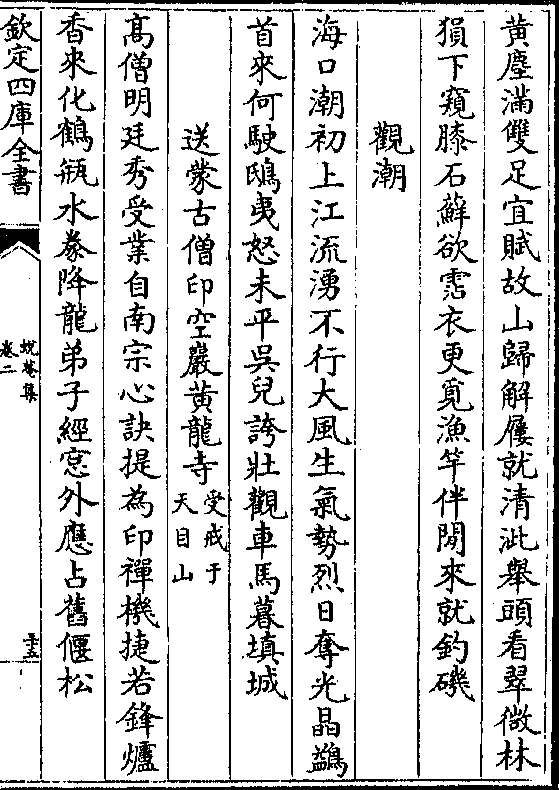 黃塵滿雙足宜賦故山歸解屨就清泚舉頭看翠微林
猿下窺膝石蘚欲霑衣更覓漁竿伴閒來就釣磯
觀潮
海口潮初上江流湧不行大風生氣勢烈日奪光晶鷁
首來何駛鴟夷怒未平吳兒誇壯觀車馬暮填城
送蒙古僧印空巖黃龍寺受戒于天目山
髙僧明廷秀受業自南宗心訣提為印禪機捷若鋒爐
香來化鶴瓶水豢降龍弟子經窓外應占舊偃松
欽定四庫全書
蛻菴集
卷二
三五